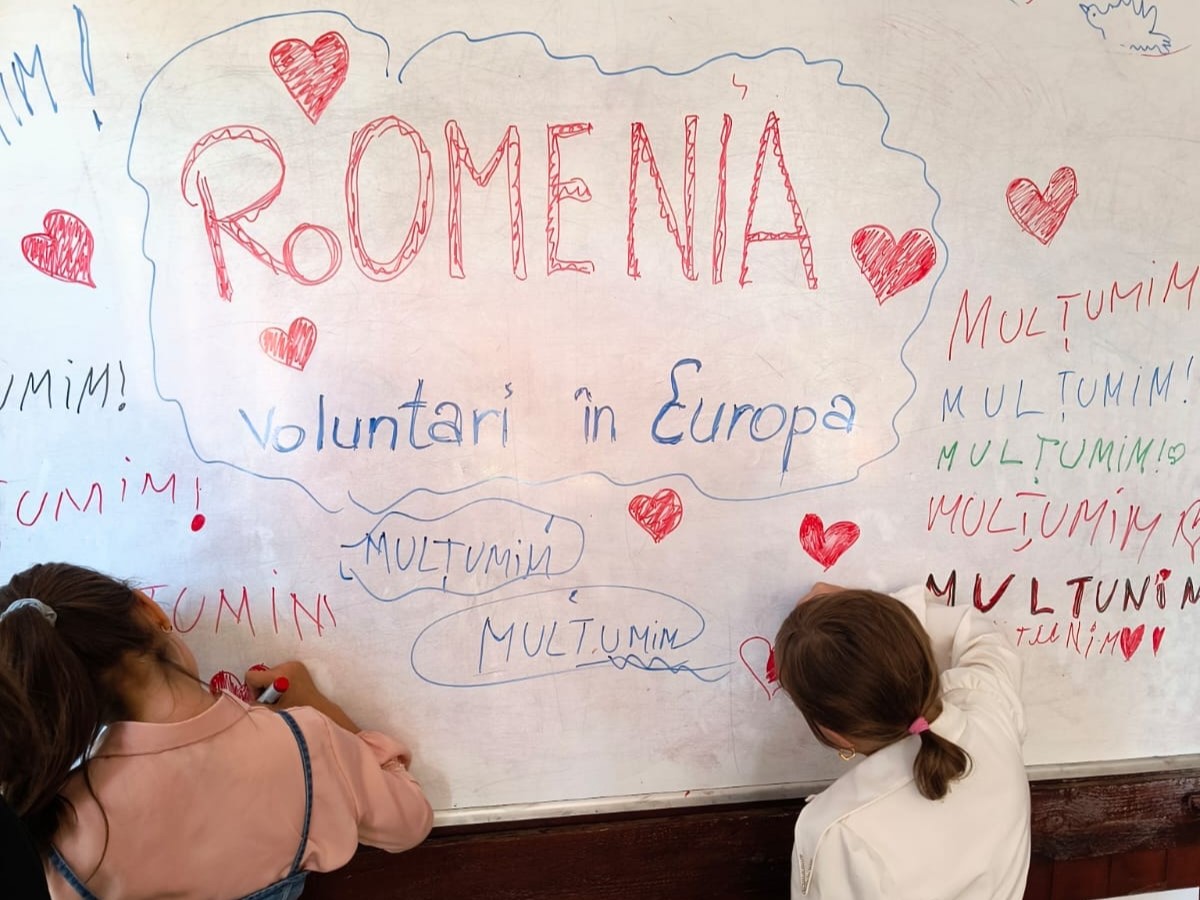 ROMENIA
Voluntari în Europa
UMIM!
ȚUMIM!
ȚUMIM
MULȚUMIM
MULȚUMIM
MULȚUMIM
MULȚUMIM!
MULȚUMIM!
MULȚUMIM
MULTUNIM